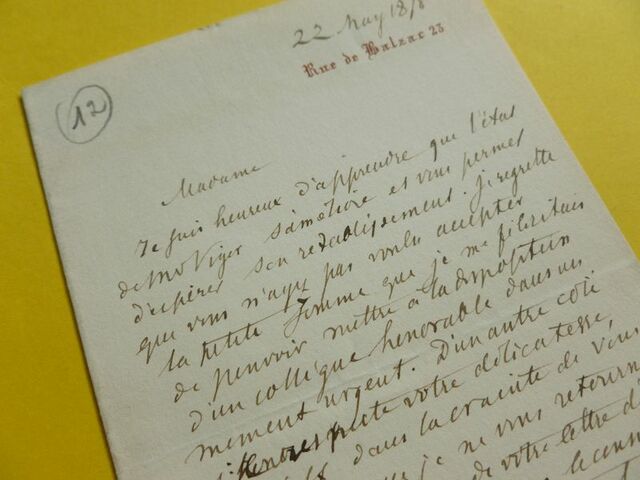 12
22 May 18
Rue de Balzac 23
Madame
Je suis heureux d'apprendre que l'état
de Mr Viger s'améliore et vous permet
d'espérer son rétablissement. je regrette
que vous n'ayez pas voulu accepter
la petite somme que je me félicitais
de pouvoir mettre à la disposition
d'un collègue honorable dans un
moment urgent. D'un autre coté
respecte votre délicatesse,
dans la crainte de vous
je ne vous retourn
de votre lettre d